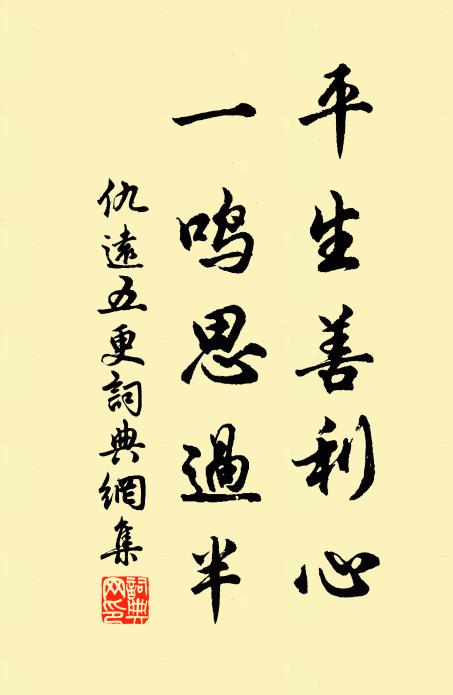 平生善利心
一鸣思過半
仇遠五更詞典網集
詞典网印